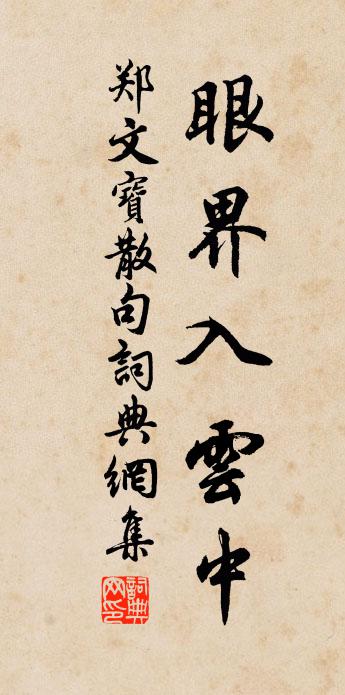 眼界入雲中
郑文寶散句詞典網集
詞典網印